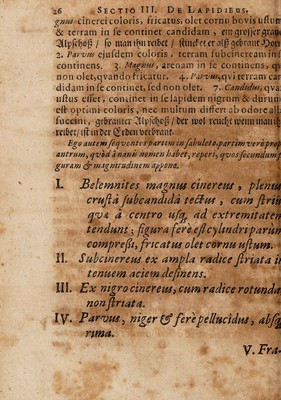 26 SECTIO III. DE LAPIDIBUS.
gnus cinerei coloris, fricatus, olet cornu bovis ustum
& terram in se continet candidam, ein grosser grawer
Alpschoß / so man ihn reibet / stincket er alß gebrant Horn
2. Parvus ejusdem coloris, terram subcineream in se
continens. 3. Magnus, arenam in se continens, qui
non olet, quando fricatur. 4. Parvus, qui terram can-
didam in se continet, sed non olet. 7. Candidus, qua
ustus esset, continet in se lapidem nigrum & durum
est optimi coloris, nec multum differt ab odore al
succini, gebranter Alpschoß / der wol reucht wenn man ihn
reibet / ist in der Erden verbrant.
Ego autem sequentes partim in sabuleto, partim verò prope
antrum, quòd à nanis nomen habet, reperi, quos secundum fi-
guram & magnitudinem appona.
I. Belemnites magnus cinereus, plenus
crustâ subcandidâ tectus, cum striis
quæ à centro usq; ad extremitatem
tendunt; figura ferè est cylindri parùm
compreßi, fricatus olet cornu ustum.
II. Subcinereus ex ampla radice striata in
tenuem aciem desinens.
III. Ex nigro cinereus, cum radice rotunda
non striata.
IV. Parvus, niger & ferè pellucidus, absq;
rima.
V. Fra-